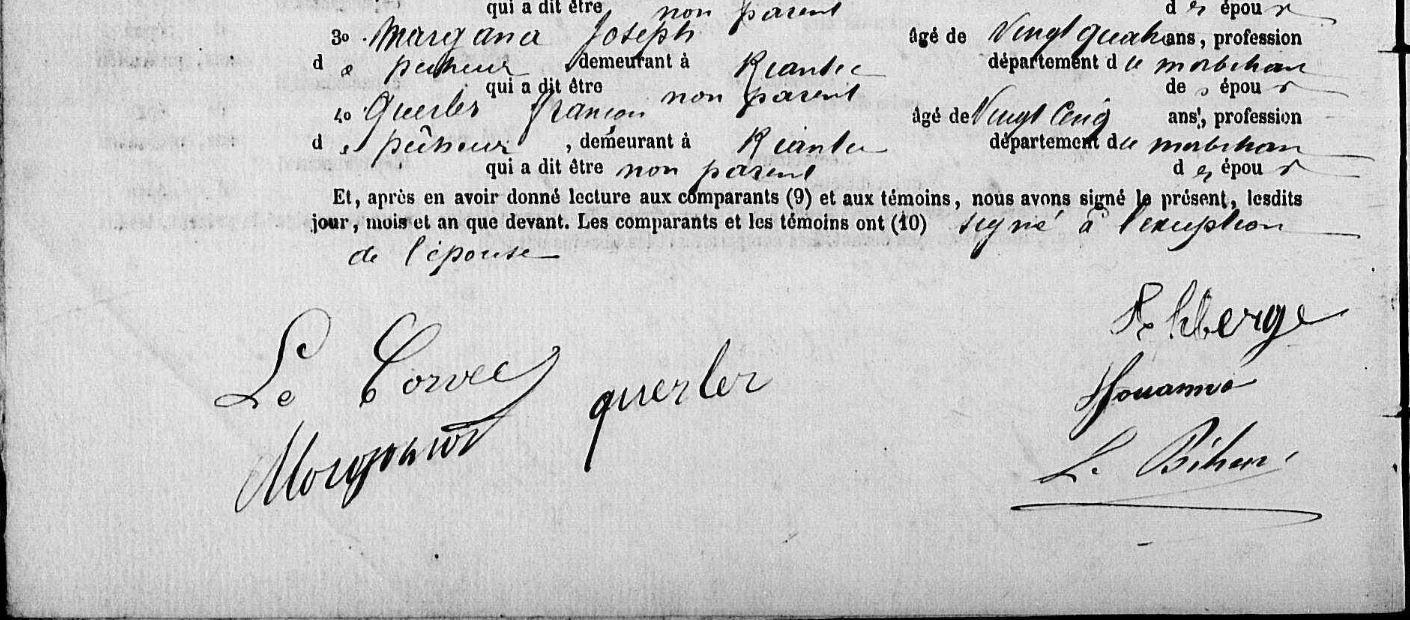 qui a dit être non parent des époux
3o Margana Joseph âgé de Vingt quatre ans, profession
de pêcheur, demeurant à Riantec département du morbihan
qui a dit être non parent des époux
4o Querler françois âgé de Vingt Cinq ans, profession
de pêcheur, demeurant à Riantec département du morbihan
qui a dit être non parent des époux
Et, après en avoir donné lecture aux comparants (9) et aux témoins, nous avons signé le présent, lesdits
jour, mois et an que devant. Les comparants et les témoins ont (10) signé à l'exception
de l'épouse
Le Corvec querler
L. Bihan